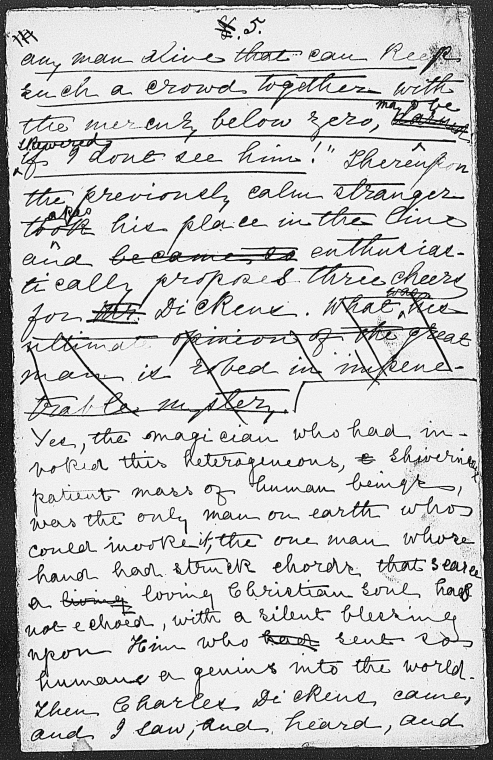 5.
any man alive that can keep
such a crowd together with
the mercury below zero, may be
skewered
if I dont see him!" Thereupon
the previously calm stranger
took also his place in the line
and became so enthusias-
tically proposed three cheers
for Mr. Dickens. What was his
ultimate opinion of the great
man is robed in impene-
trable mystery.
Yes, the magician who had in-
voked this heterogeneous, shivering
patient mass of human beings,
was the only man on earth who
could invoke it, the one man whose
hand had struck chords that scarce
a living loving Christian soul had
not echoed, with a silent blessing
upon Him who had sent so
humane a genius into the world.
Then Charles Dickens came,
and I saw, and heard, and